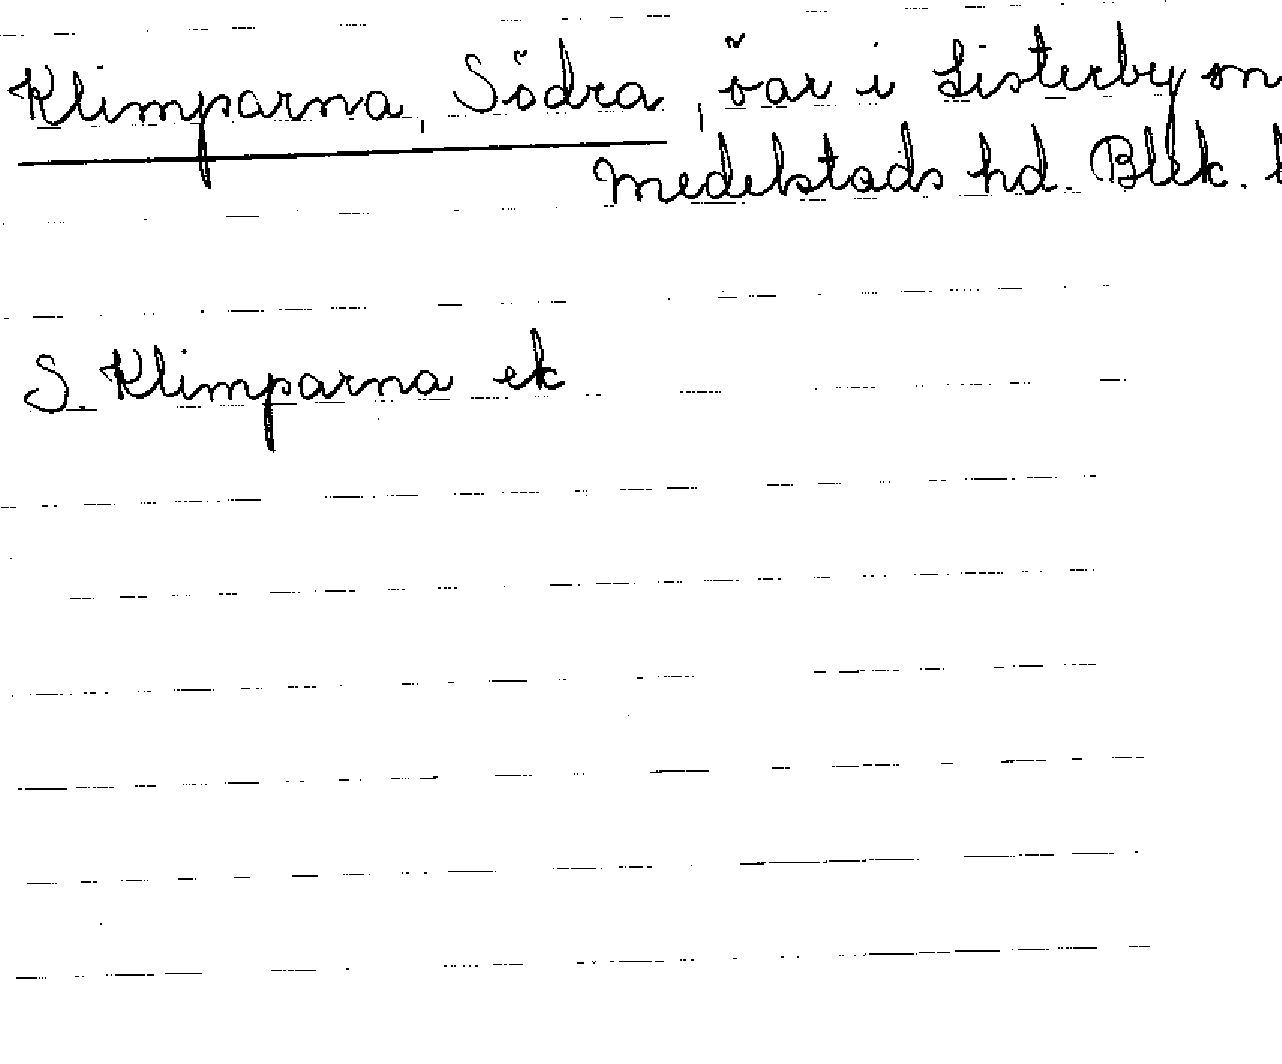 Klimparna, Södra, öar i Listerby sn
Medelstads hd. Blek. l
S. Klimparna ek